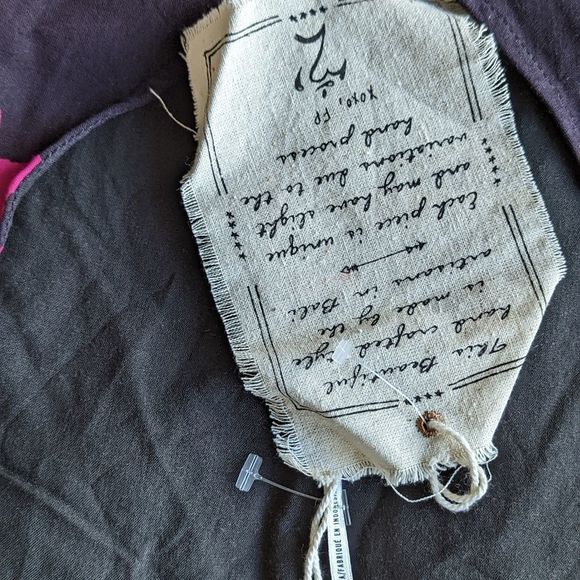 This Beautiful
hand crafted style
is made by the
artisans in Bali.
Each piece is unique
and may have slight
variations due to the
hand process
xoxo, FP
A/FABRIQUÉ EN INDON